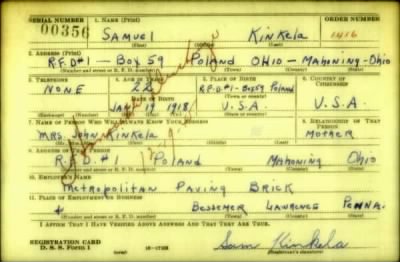 SERIAL NUMBER 1. NAME (Print) ORDER NUMBER
00356 SAMUEL KINKELA 1416
(First) (Middle) (Last)
2. ADDRESS (Print)
R.F.D #1 - BOX 59 POLAND OHIO - MAHONING - OHIO
(Number and street or R. F. D. number) (Town) (County) (State)
3. TELEPHONE 4. AGE IN YEARS 5. PLACE OF BIRTH 6. COUNTRY OF CITIZENSHIP
NONE 22 R.F.D #1 - BOX 59 POLAND
DATE OF BIRTH (Town or county)
JAN 19 1918 U.S.A. U.S.A.
(Mo.) (Day) (Yr.) (State or country)
7. NAME OF PERSON WHO WILL ALWAYS KNOW YOUR ADDRESS 8. RELATIONSHIP OF THAT PERSON
MRS. JOHN KINKELA MOTHER
9. ADDRESS OF THAT PERSON
R.F.D #1 POLAND MAHONING OHIO
(Number and street or R. F. D. number) (Town) (County) (State)
10. EMPLOYER'S NAME
METROPOLITAN PAVING BRICK
11. PLACE OF EMPLOYMENT OR BUSINESS
BESSEMER LAWRENCE PENNA.
(Number and street or R. F. D. number) (Town) (County) (State)
I AFFIRM THAT I HAVE VERIFIED ABOVE ANSWERS AND THAT THEY ARE TRUE.
REGISTRATION CARD
D. S. S. Form 1 (over) Sam Kinkela
(Registrant's signature)